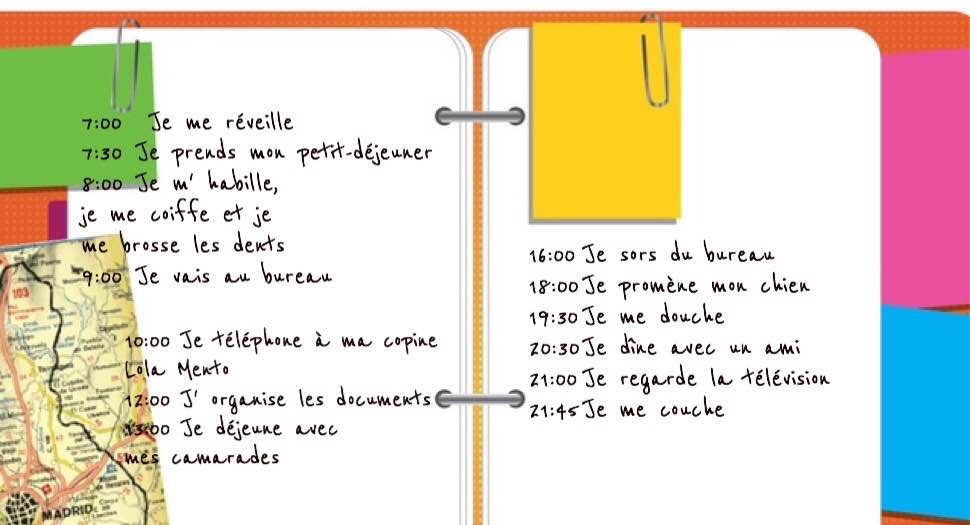 7:00 Je me réveille
7:30 Je prends mon petit-déjeuner
8:00 Je m' habille,
je me coiffe et je
me brosse les dents
9:00 Je vais au bureau
10:00 Je téléphone à ma copine
Lola Mento
12:00 J' organise les documents
13:00 Je déjeune avec
mes camarades
103
MADRID
16:00 Je sors du bureau
18:00 Je promène mon chien
19:30 Je me douche
20:30 Je dîne avec un ami
21:00 Je regarde la télévision
21:45 Je me couche